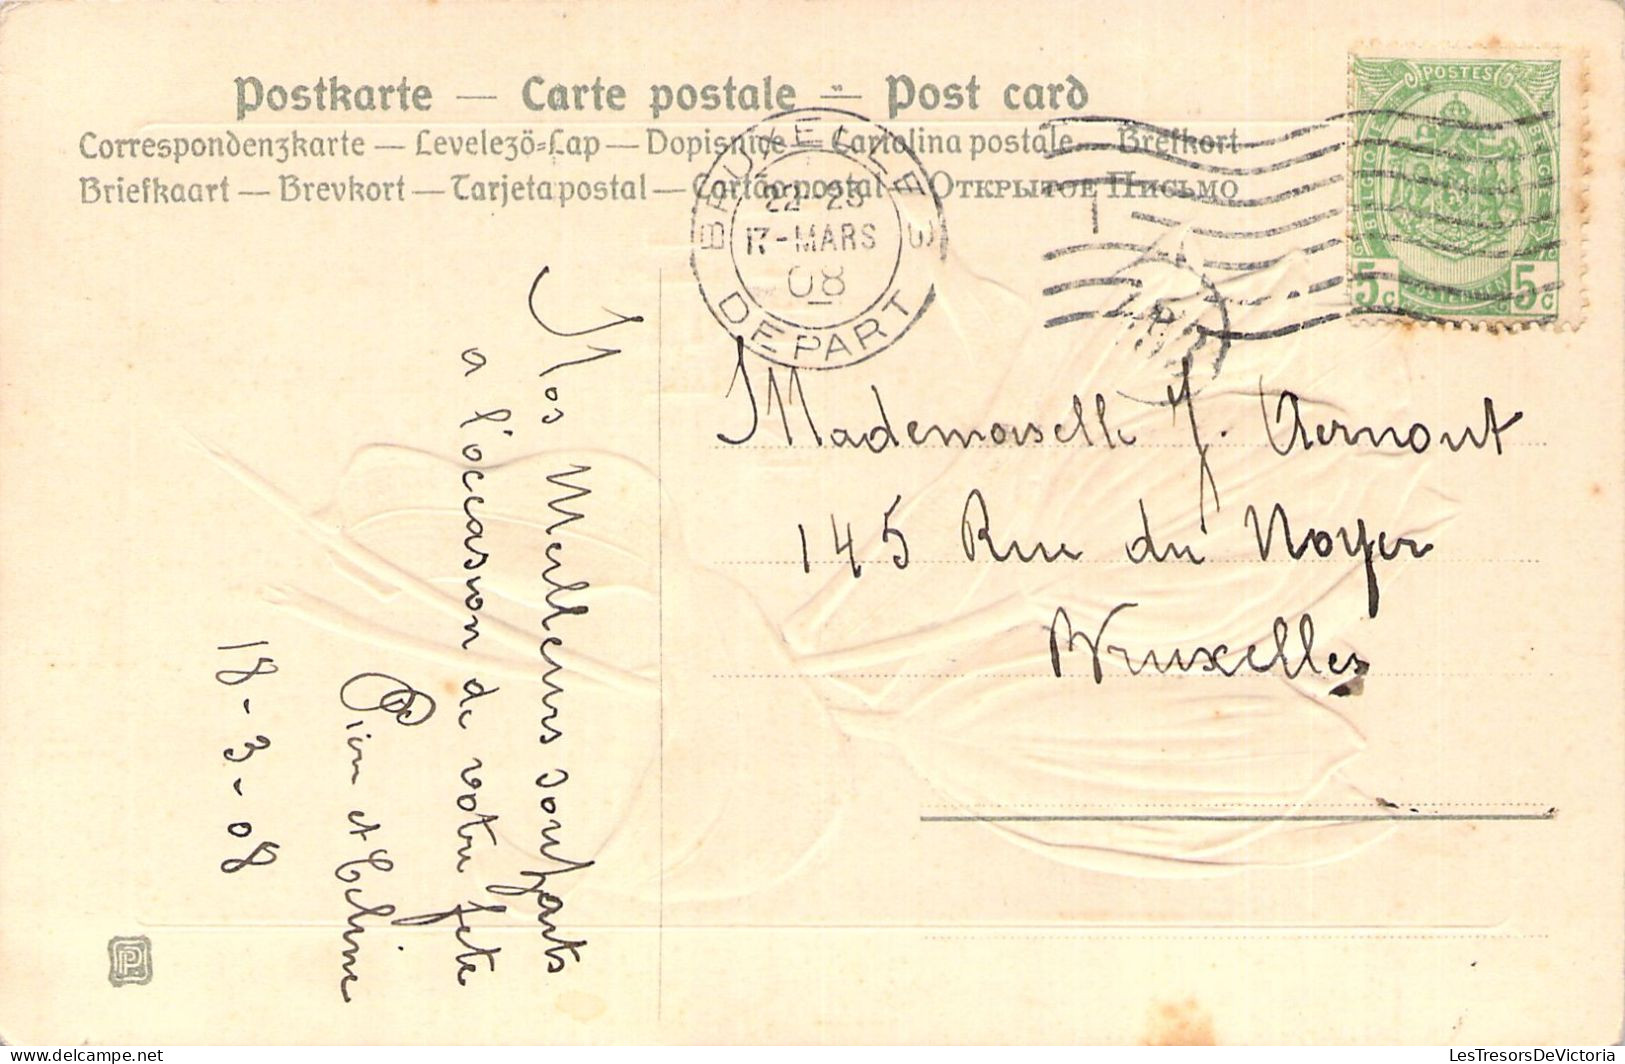 Postkarte — Carte postale — Post card
Correspondenzkarte — Levelezö-Lap — Dopisnice — Cartolina postale — Brefkort
Briefkaart — Brevkort — Tarjeta postal — Cartão postal — Открытое Письмо
BRUXELLES
17-MARS
08
DEPART
POSTES
5c 5c
Mademoiselle J. Aernout
145 Rue du Noyer
Bruxelles
Mos Meilleurs souhaits
a l'occasion de votre fete
et Celine
18-3-08
LesTresorsDeVictoria
delcampe.net